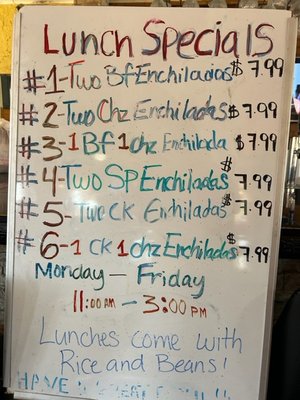 Lunch Specials
#1-Two Bf Enchiladas $7.99
#2-Two Chz Enchiladas $7.99
#3-1 Bf 1 chz Enchilada $7.99
#4-Two SP Enchiladas $7.99
#5-Two CK Enchiladas $7.99
#6-1 CK 1 chz Enchiladas $7.99
Monday - Friday
11:00 AM - 3:00 PM
Lunches come with
Rice and Beans!
HAVE A GREAT